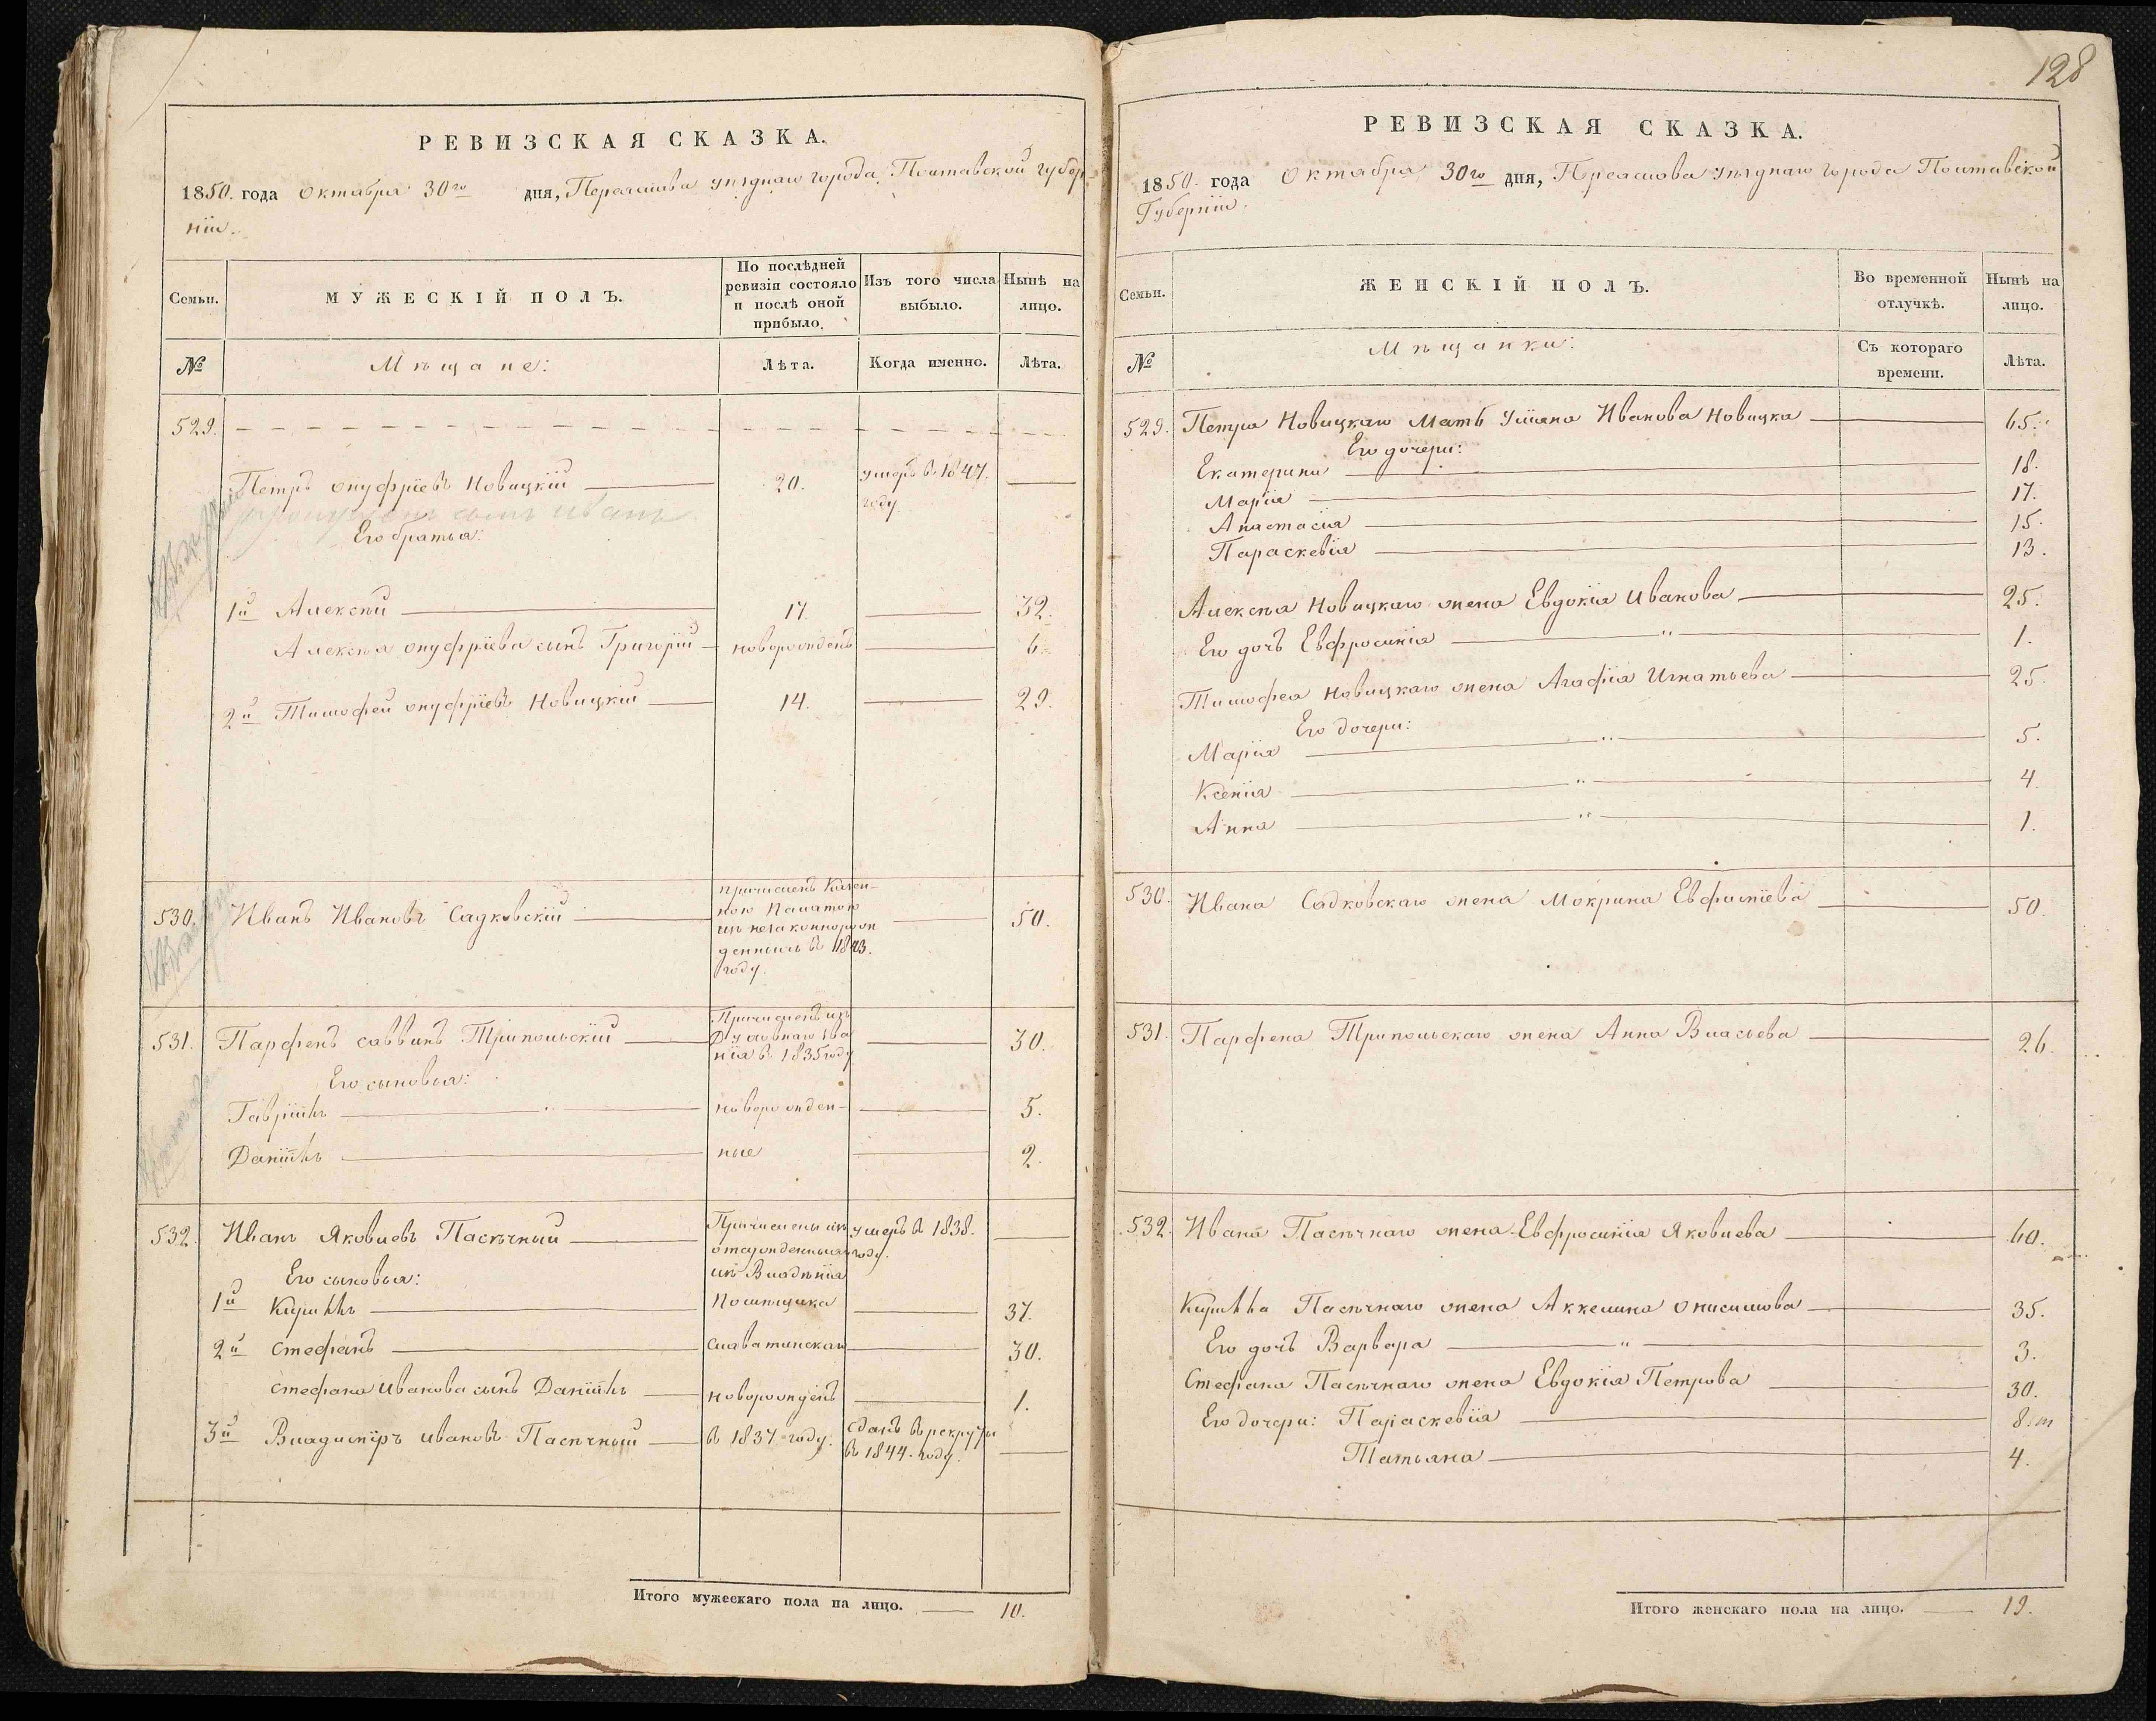 РЕВИЗСКАЯ СКАЗКА.
1850. года Октября 30го дня, Переяслова уѣзднаго города, Полтавской губер-
нiи.
Семьи.
МУЖЕСКІЙ ПОЛЪ.
По послѣдней ревизіи состояло и послѣ оной прибыло.
Изъ того числа выбыло.
Нынѣ на лицо.
№
Мѣщане:
Лѣта.
Когда именно.
Лѣта.
529.
Петръ Онуфріевъ Новицкій 20. умеръ въ 1847. году.
сынъ Иванъ
Его братья:
1й Алексѣй 17. 32.
Алексѣя Онуфріева сынъ Григорій новорожденъ 6.
2й Тимофей Онуфріевъ Новицкій 14. 29.
530. Иванъ Ивановъ Садковскій 50.
причисленъ Казен-
ною Палатою
изъ незаконнорож
денныхъ въ 1843.
году.
531. Парфенъ Саввинъ Трипольскій 30.
Причисленъ изъ
Духовнаго зва
нія въ 1835 году
Его сыновья:
Гавріилъ новорожден- 5.
Даніилъ ные 2.
532. Иванъ Яковлевъ Пасѣчный умеръ въ 1838. году.
Причислены изъ
отсужденныхъ
изъ Владѣнія
Его сыновья:
1й Кирилъ Помѣщика 37.
2й Стефанъ Славатинскаго 30.
Стефана Иванова сынъ Даніилъ новорожденъ 1.
3й Владимiръ Ивановъ Пасѣчный въ 1837 году. сданъ въ рекруты
въ 1844. году.
Итого мужескаго пола на лицо. 10.
128
РЕВИЗСКАЯ СКАЗКА.
1850. года Октября 30го дня, Переяслова уѣзднаго города Полтавской
Губернiи.
Семьи.
ЖЕНСКІЙ ПОЛЪ.
Во временной отлучкѣ.
Нынѣ на лицо.
№
Мѣщанки:
Съ котораго времени.
Лѣта.
529. Петра Новицкаго Мать Уліяна Иванова Новицка 65.
Его дочери:
Екатерина 18.
Марія 17.
Анастасія 15.
Параскевія 13.
Алексѣя Новицкаго жена Евдокія Иванова 25.
Его дочь Евфросинія " 1.
Тимофея Новицкаго жена Агафія Игнатьева 25.
Его дочери:
Марія " 5.
Ксенія " 4.
Анна " 1.
530. Ивана Садковскаго жена Мокрина 50.
531. Парфена Трипольскаго жена Анна Власьева 26.
532. Ивана Пасѣчнаго жена Евфросинія Яковлева 60.
Кирилла Пасѣчнаго жена Аккелина Онисимова 35.
Его дочь Варвара " 3.
Стефана Пасѣчнаго жена Евдокія Петрова 30.
Его дочери: Параскевія 8.
Татьяна 4.
Итого женскаго пола на лицо. 19.